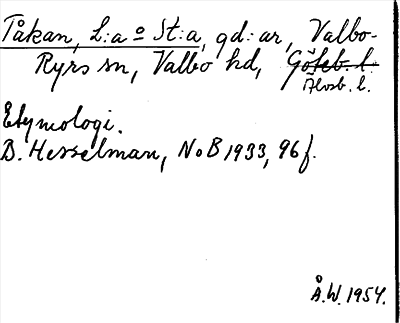 Tåkan, L:a o St:a, gd:ar, Valbo-
Ryrs sn, Valbo hd, Göteb. l.
Älvsb. l.
Etymologi.
B. Hesselman, NoB 1933, 96 f.
Å.W. 1954.